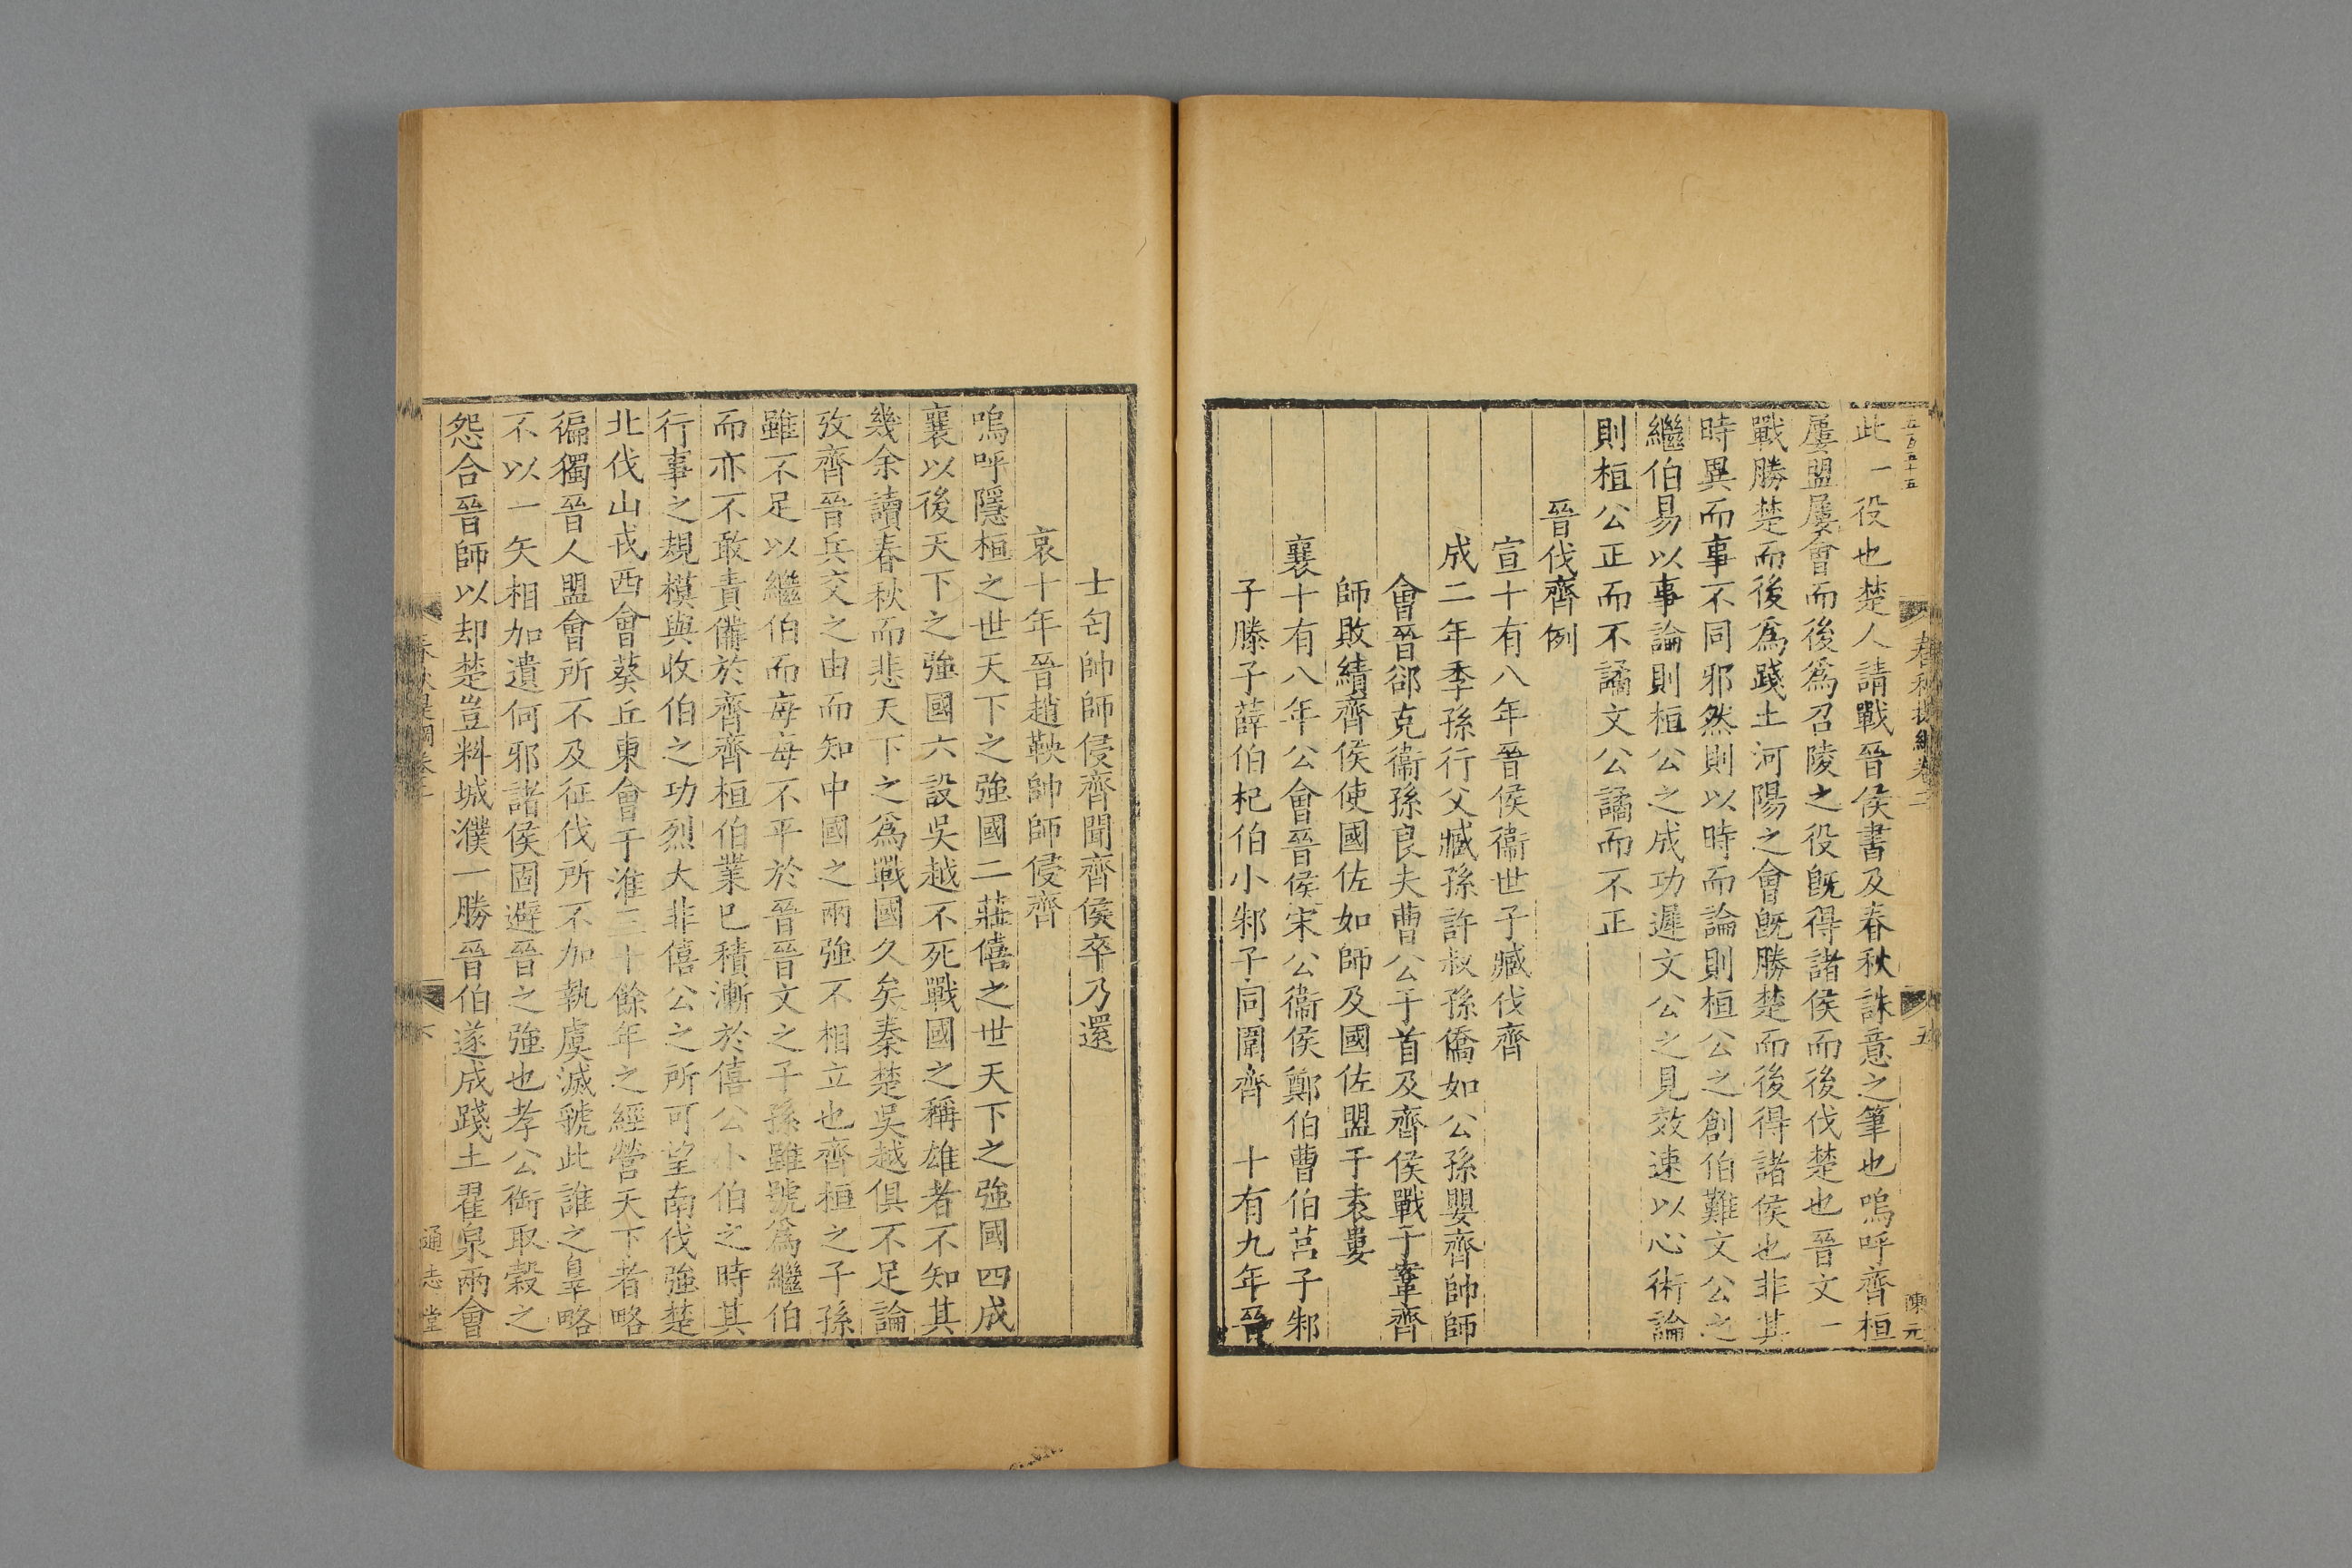 五百五十五
春秋提綱卷二
五
陳元
此一役也楚人請戰晉侯書及春秋誅意之筆也嗚呼齊桓
屢盟屢會而後爲召陵之役旣得諸侯而後伐楚也晉文一
戰勝楚而後爲踐土河陽之會旣勝楚而後得諸侯也非其
時異而事不同邪然則以時而論則桓公之創伯難文公之
繼伯易以事論則桓公之成功遲文公之見效速以心術論
則桓公正而不譎文公譎而不正
晉伐齊例
宣十有八年晉侯衞世子臧伐齊
成二年季孫行父臧孫許叔孫僑如公孫嬰齊帥師
會晉郤克衞孫良夫曹公子首及齊侯戰于鞌齊
師敗績齊侯使國佐如師及國佐盟于袁婁
襄十有八年公會晉侯宋公衞侯鄭伯曹伯莒子邾
子滕子薛伯杞伯小邾子同圍齊 十有九年晉
士匄帥師侵齊聞齊侯卒乃還
哀十年晉趙鞅帥師侵齊
嗚呼隱桓之世天下之強國二莊僖之世天下之強國四成
襄以後天下之強國六設吳越不死戰國之稱雄者不知其
幾余讀春秋而悲天下之爲戰國久矣秦楚吳越俱不足論
攷齊晉兵交之由而知中國之兩強不相立也齊桓之子孫
雖不足以繼伯而每每不平於晉晉文之子孫雖號爲繼伯
而亦不敢責備於齊齊桓伯業已積漸於僖公小伯之時其
行事之規模與收伯之功烈大非僖公之所可望南伐強楚
北伐山戎西會葵丘東會于淮三十餘年之經營天下者略
徧獨晉人盟會所不及征伐所不加執虞滅虢此誰之辠略
不以一矢相加遺何邪諸侯固避晉之強也孝公銜取穀之
怨合晉師以却楚豈料城濮一勝晉伯遂成踐土翟泉兩會
春秋提綱卷二
六
通志堂